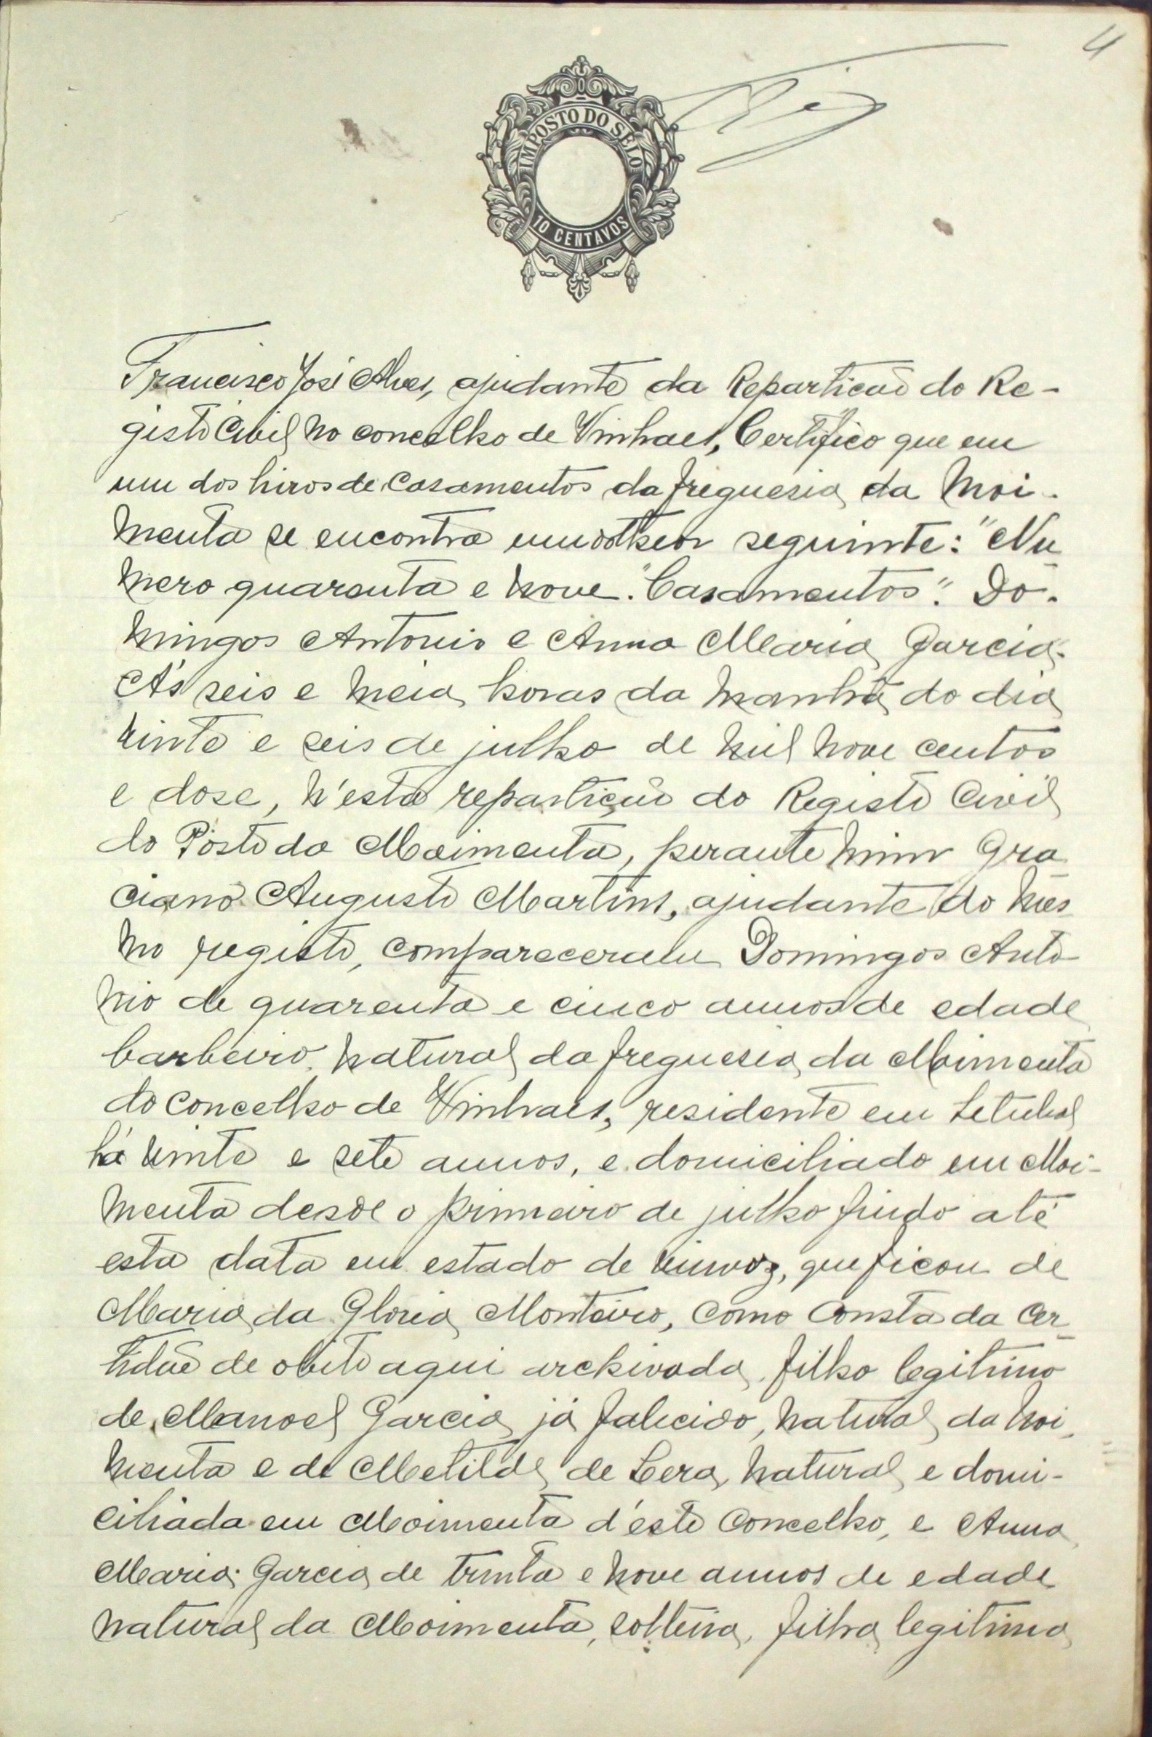 4
IMPOSTO DO SELO
10 CENTAVOS
Francisco José Alves, ajudante da Repartição do Re-
gisto Civil no concelho de Vinhaes, Certifico que em
um dos livros de Casamentos da freguesia da Moi-
menta se encontra um do theor seguinte: "Nu
mero quarenta e nove." Casamentos". Do-
mingos Antonio e Anna Maria Garcia.
Ás seis e meia horas da manhã do dia
vinte e seis de julho de mil nove centos
e dose, n'esta repartição do Registo Civil
do Posto da Moimenta, perante mim Gra
ciano Augusto Martins, ajudante do mes
mo registo, compareceram Domingos Anto
nio de quarenta e cinco annos de edade
barbeiro, natural da freguesia da Moimenta
do concelho de Vinhaes, residente em Setubal
há vinte e sete annos, e domiciliado em Moi-
menta desde o primeiro de julho findo até
esta data em estado de viuvez, que ficou de
Maria da Gloria Monteiro, como consta da cer
tidão de obito aqui archivada, filho legitimo
de Manoel Garcia já falecido, natural da Moi
menta e de Metilde de Cera, natural e domi-
ciliada em Moimenta d'este concelho, e Anna
Maria Garcia de trinta e nove annos de edade
natural da Moimenta, solteira, filha legitima